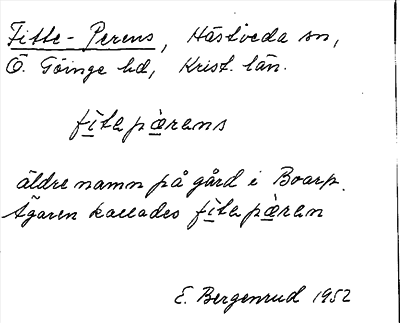 Fitte-Perens, Hästveda sn,
Ö. Göinge hd, Krist. län.
fitapærens
äldre namn på gård i Boarp.
Ägaren kallades fitapæran
E. Bergenrud 1952